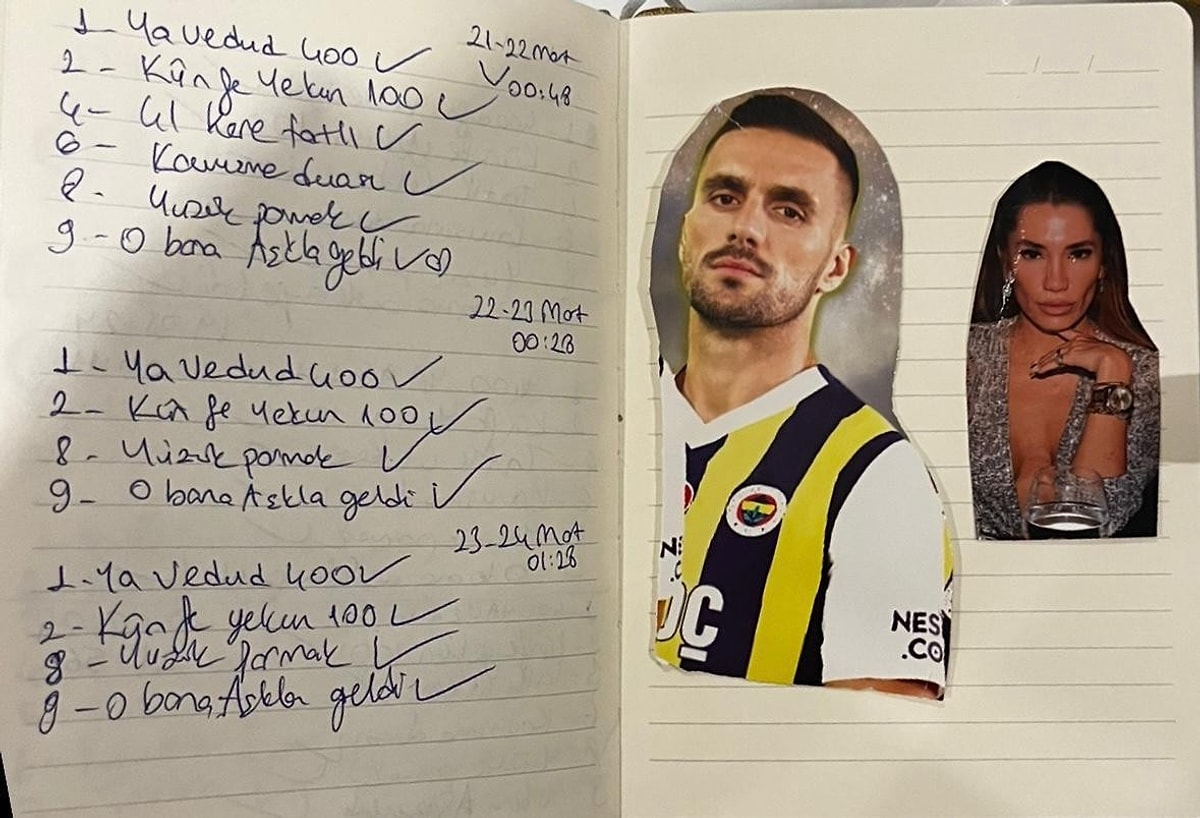 1- Ya Vedud 400 ✓
21-22 Mart
✓00:48
2- Kûn fe Yekun 100 ✓
4- 41 kere tatlı ✓
6- Kavuşma duası ✓
8- Yüzük parmak ✓
9- O bana Aşkla geldi ✓
22-23 Mart
00:28
1- Ya Vedud 400 ✓
2- Kûn fe Yekun 100 ✓
8- Yüzük parmak ✓
9- O bana Aşkla geldi ✓
23-24 Mart
01:28
1- Ya Vedud 400 ✓
2- Kûn fe yekun 100 ✓
8- Yüzük parmak ✓
9- O bana Aşkla geldi ✓
NES
.CO